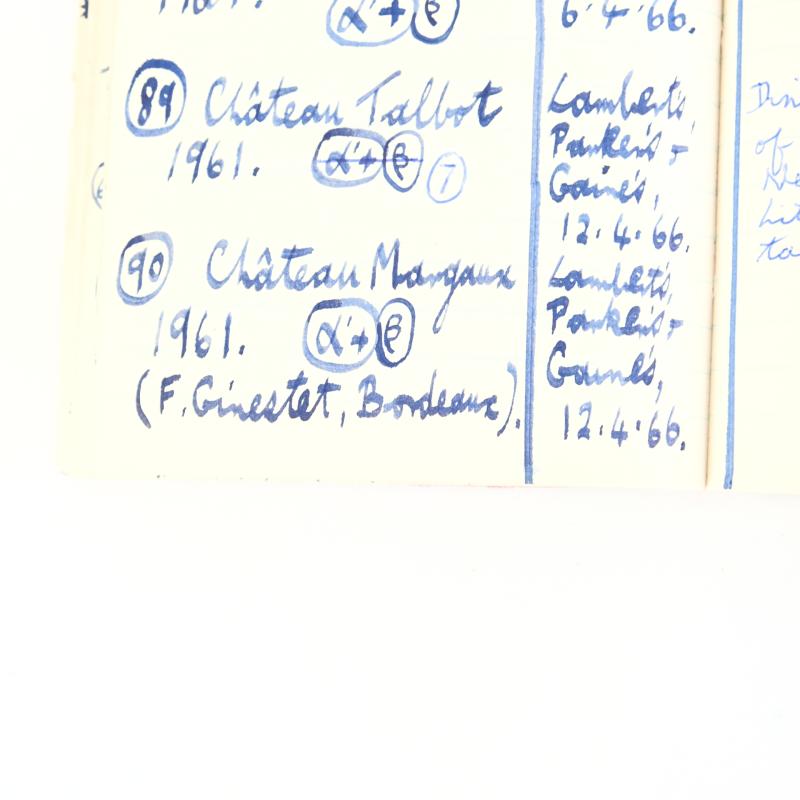 6.4.66.
89 Château Talbot
1961. α'+ β 7
Lamberts,
Parkers +
Gaines,
12.4.66.
90 Château Margaux
1961. α'+ β
(F. Ginestet, Bordeaux).
Lamberts,
Parkers +
Gaines,
12.4.66.
of